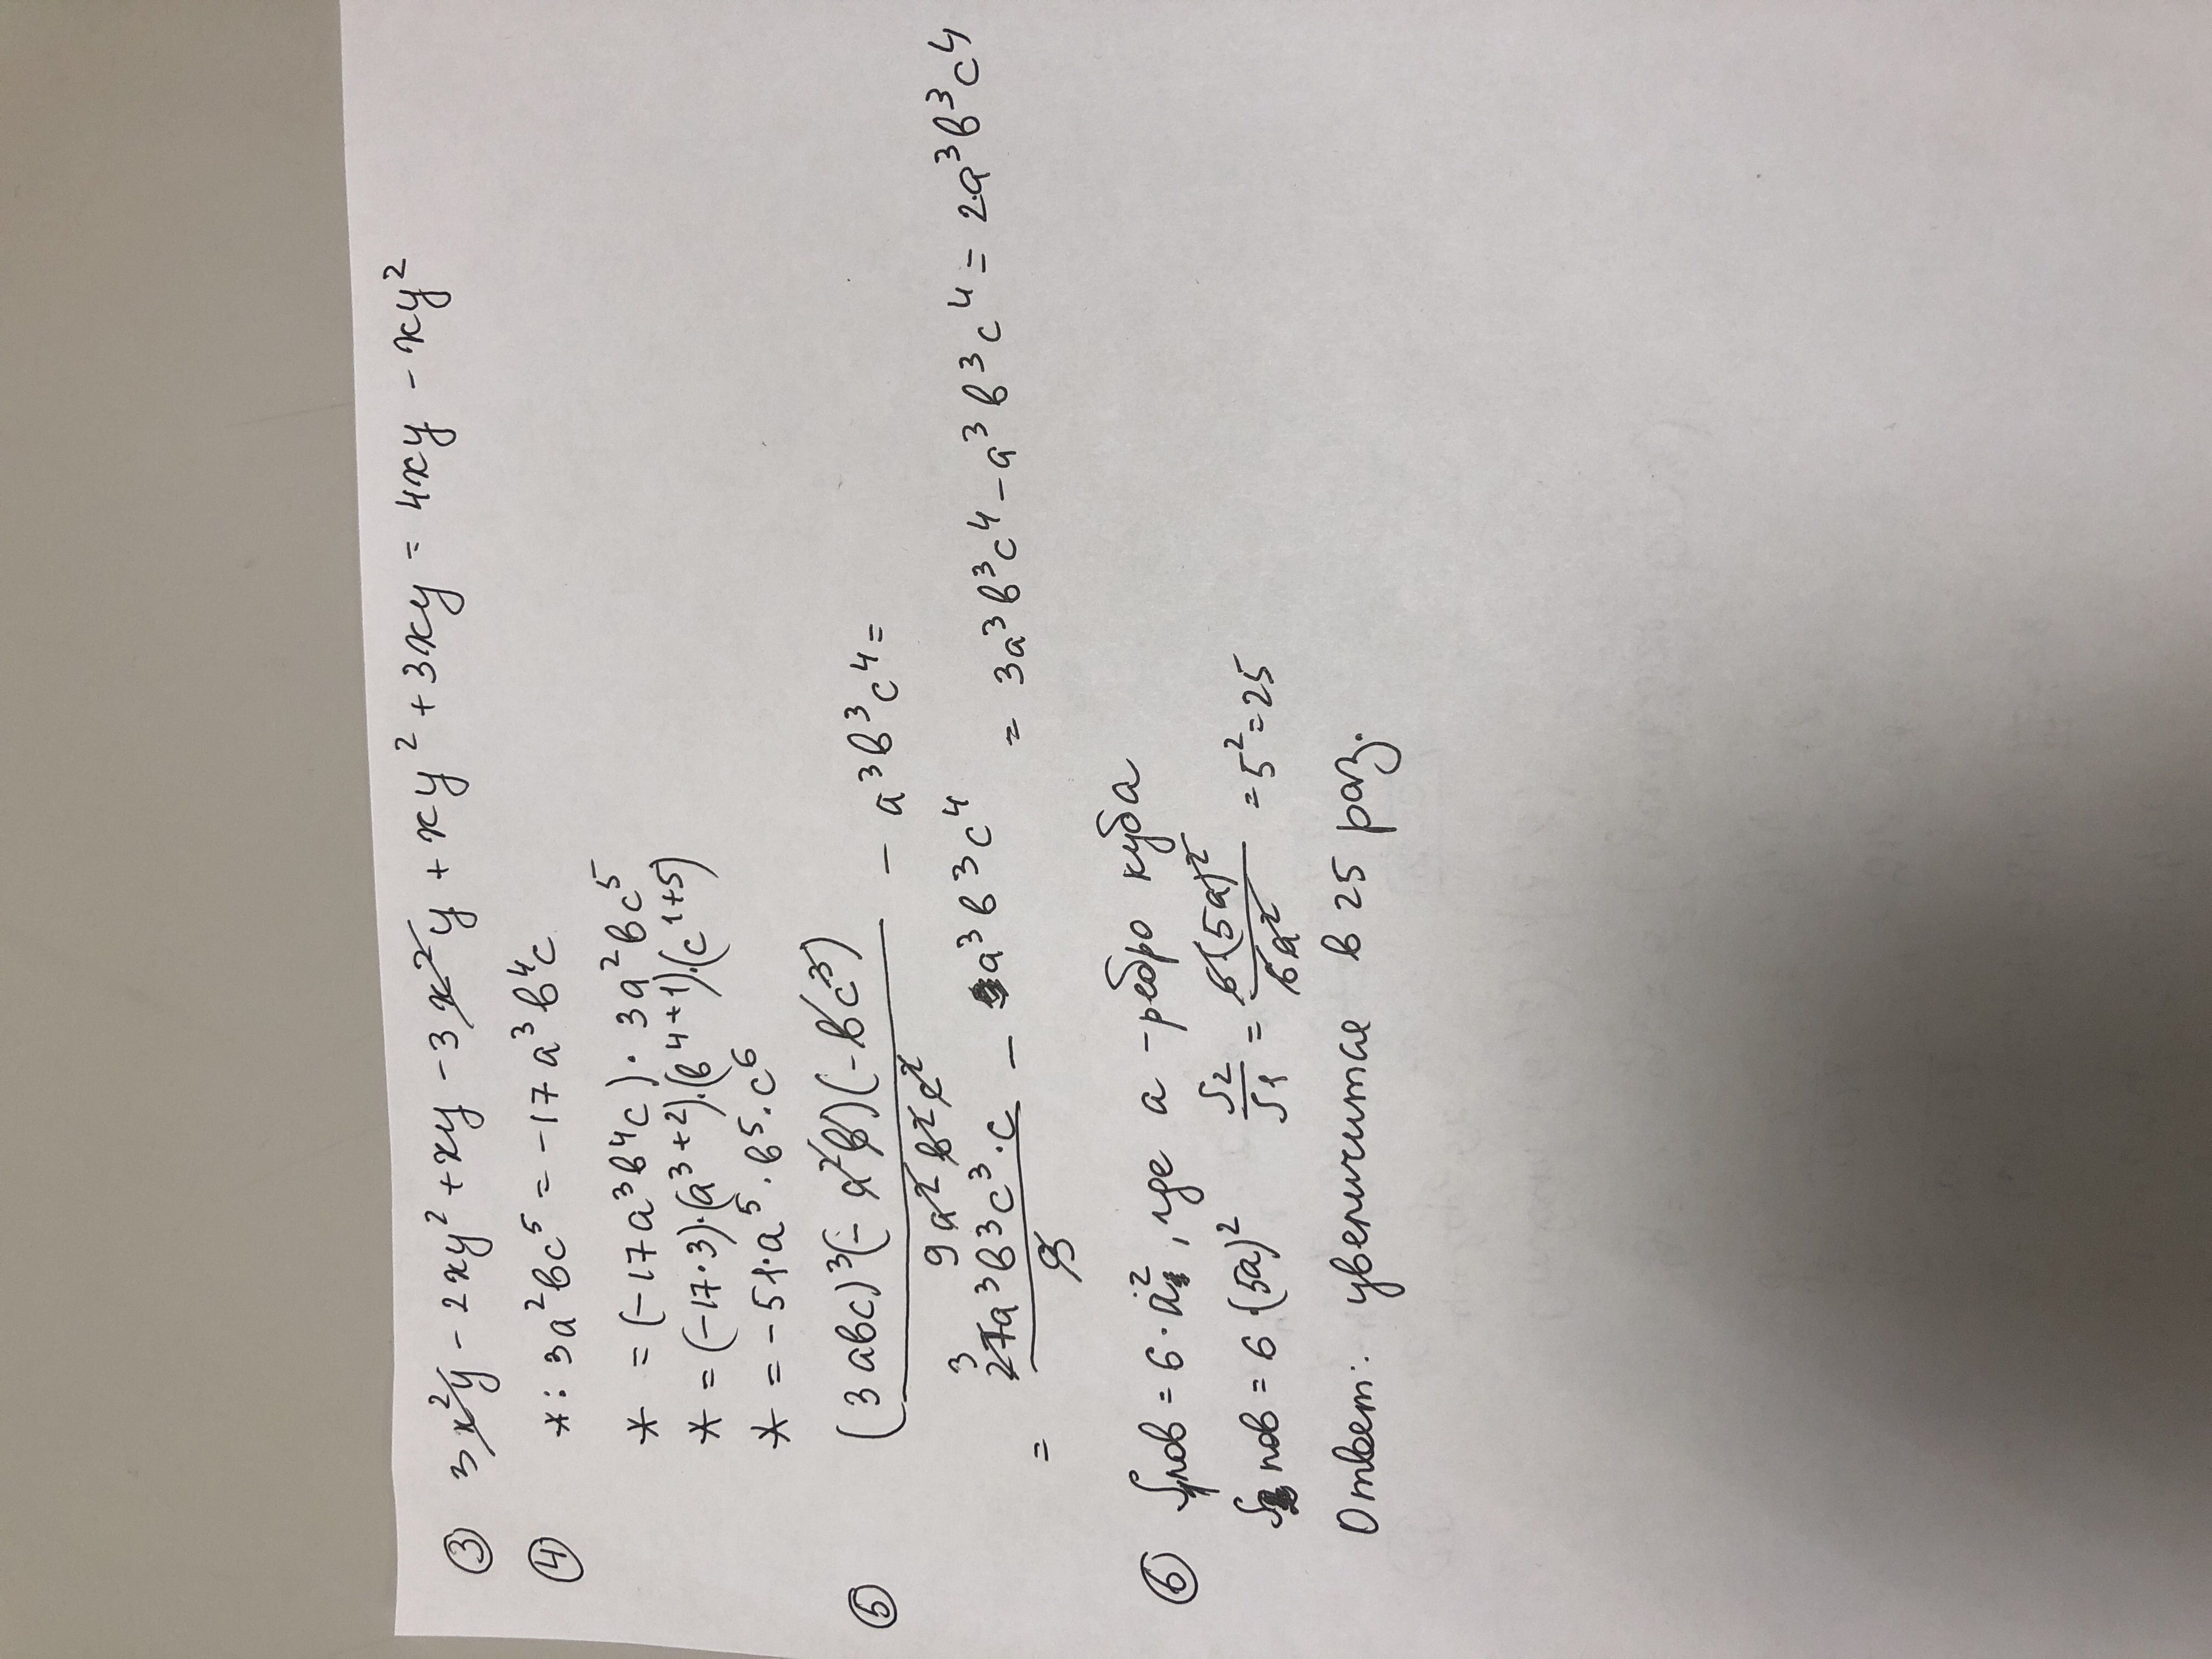 ③ 3x²y - 2xy² + xy - 3x²y + xy² + 3xy = 4xy - xy²
④ * : 3a²bc⁵ = -17a³b⁴c
* = (-17a³b⁴c) · 3a²bc⁵
* = (-17·3)·(a³⁺²)·(b⁴⁺¹)·(c¹⁺⁵)
* = -51·a⁵·b⁵·c⁶
⑤ (3abc)³(-a²b)(-bc³) / 9a²b²c² - a³b³c⁴ =
= 27a³b³c³·c / 9 - a³b³c⁴ = 3a³b³c⁴ - a³b³c⁴ = 2a³b³c⁴
3
⑥ Sпов = 6·a², где a - ребро куба
S пов = 6·(5a)² S2/S1 = 6·(5a)²/6a² = 5² = 25
Ответ: увеличится в 25 раз.